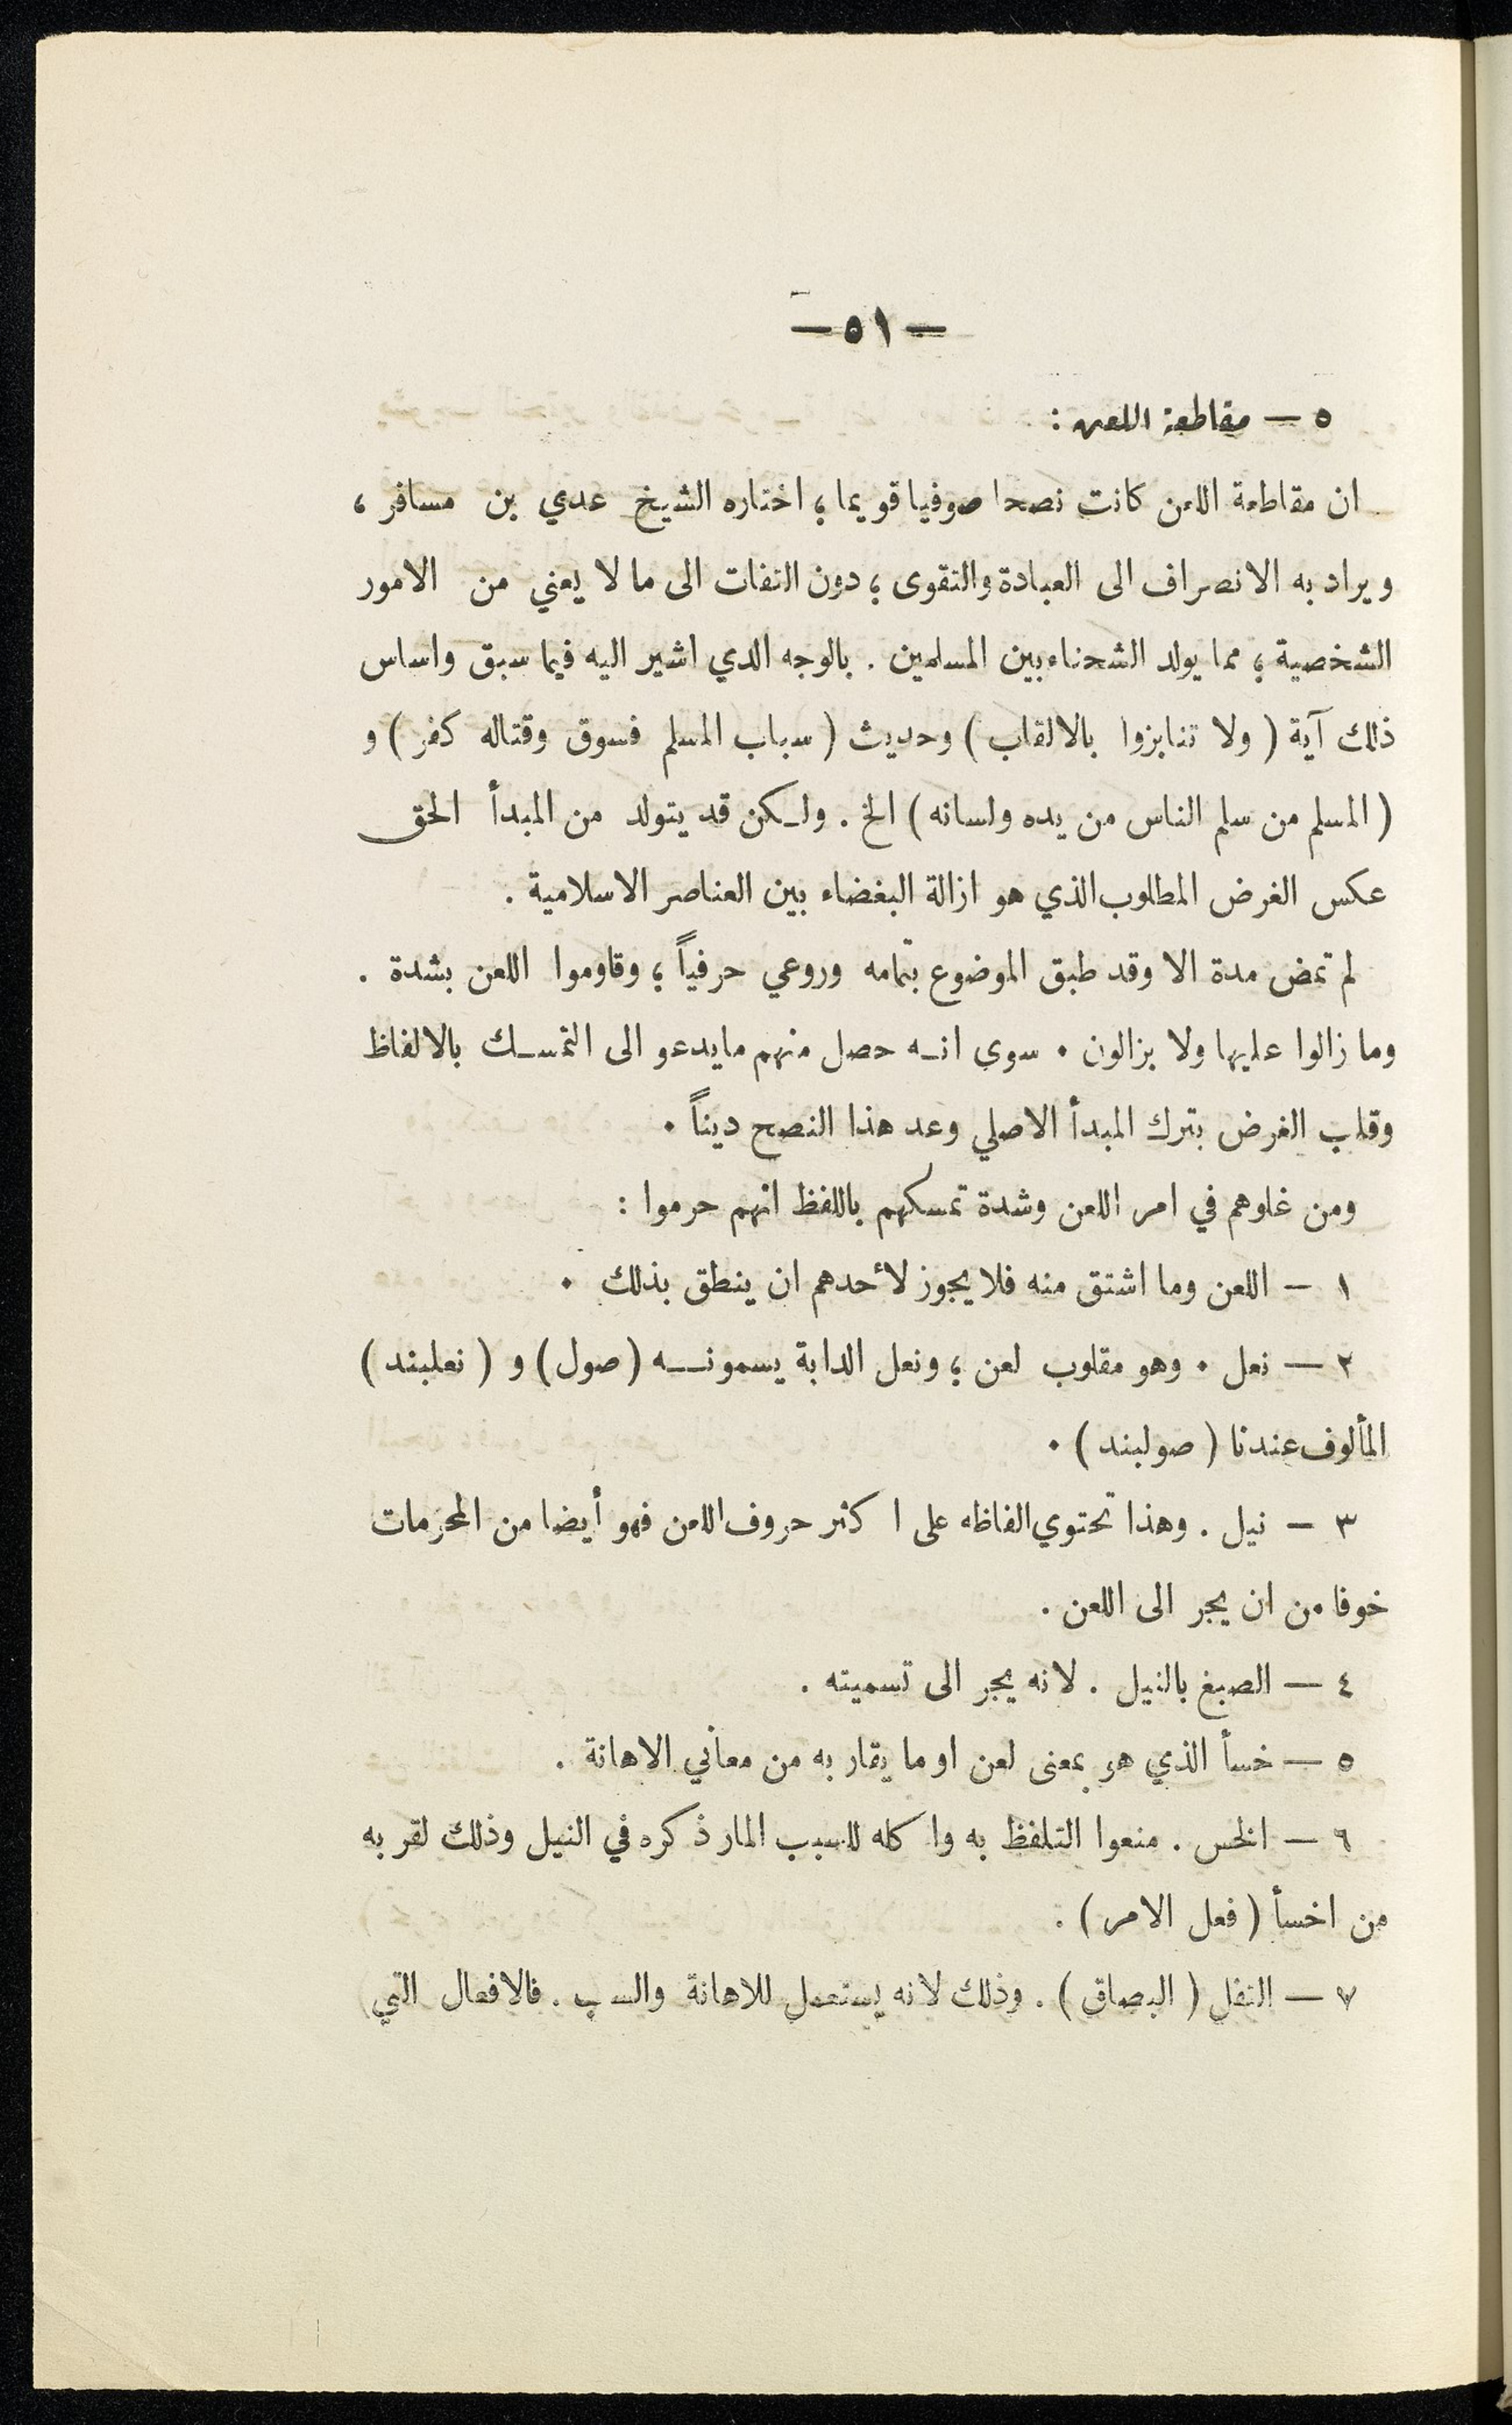 — ٥١ —
٥ — مقاطعة اللعن :
ان مقاطعة اللعن كانت نصحا صوفيا قويما ؛ اختاره الشيخ عدي بن مسافر ،
ويراد به الانصراف الى العبادة والتقوى ؛ دون التفات الى ما لا يعني من الامور
الشخصية ؛ مما يولد الشحناء بين المسلمين . بالوجه الذي اشير اليه فيما سبق واساس
ذلك آية ( ولا تنابزوا بالالقاب ) وحديث ( سباب المسلم فسوق وقتاله كفر ) و
( المسلم من سلم الناس من يده ولسانه ) الخ . ولـكن قد يتولد من المبدأ الحق
عكس الغرض المطلوب الذي هو ازالة البغضاء بين العناصر الاسلامية .
لم تمض مدة الا وقد طبق الموضوع بتمامه وروعي حرفياً ؛ وقاوموا اللعن بشدة .
وما زالوا عليها ولا يزالون . سوى انـه حصل منهم مايدعو الى التمسـك بالالفاظ
وقلب الغرض بترك المبدأ الاصلي وعد هذا النصح ديناً .
ومن غلوهم في امر اللعن وشدة تمسكهم باللفظ انهم حرموا :
١ – اللعن وما اشتق منه فلا يجوز لأحدهم ان ينطق بذلك .
٢ — نعل . وهو مقلوب لعن ؛ ونعل الدابة يسمونـــه ( صول ) و ( نعلبند )
المألوف عندنا ( صولبند ) .
٣ – نيل . وهذا تحتوي الفاظه على اكثر حروف اللعن فهو أيضا من المحرمات
خوفا من ان يجر الى اللعن .
٤ — الصبغ بالنيل . لانه يجر الى تسميته .
٥ — خسأ الذي هو بمعنى لعن او ما يقاربه من معاني الاهانة .
٦ — الخس . منعوا التلفظ به واكله للسبب المار ذكره في النيل وذلك لقربه
من اخسأ ( فعل الامر ) .
٧ — التفل ( البصاق ) . وذلك لانه يستعمل للاهانة والسب . فالافعال التي